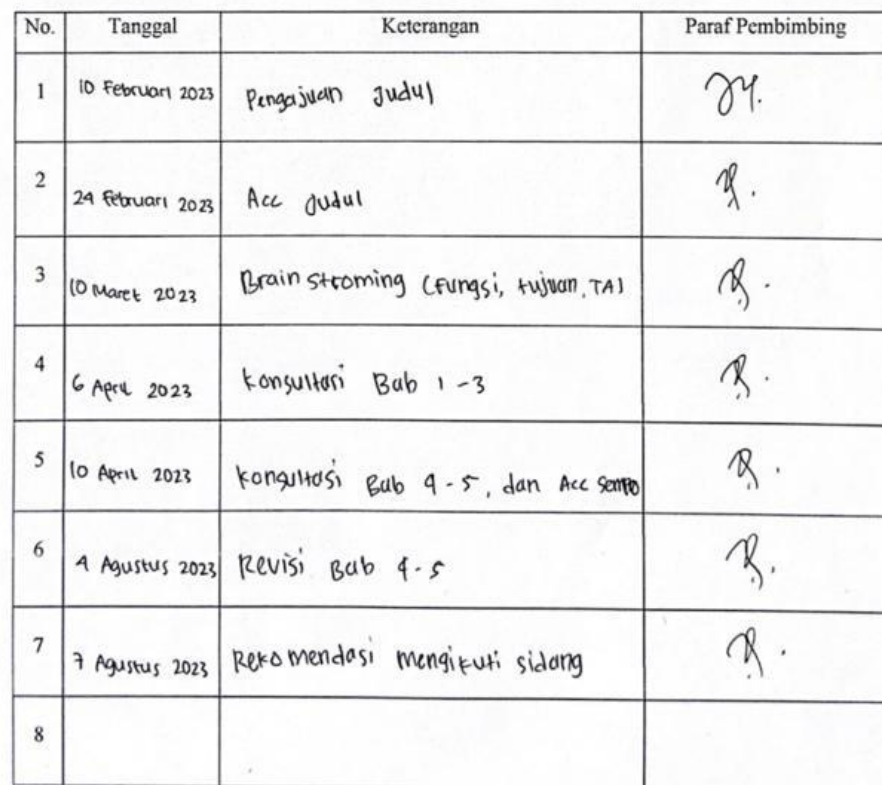 No. Tanggal Keterangan Paraf Pembimbing
1 10 Februari 2023 Pengajuan Judul
2 24 Februari 2023 Acc Judul
3 10 Maret 2023 Brain stroming (Fungsi, tujuan, TA)
4 6 April 2023 konsultasi Bab 1-3
5 10 April 2023 konsultasi Bab 4-5, dan Acc Sempro
6 4 Agustus 2023 Revisi Bab 4-5
7 7 Agustus 2023 Rekomendasi mengikuti sidang
8